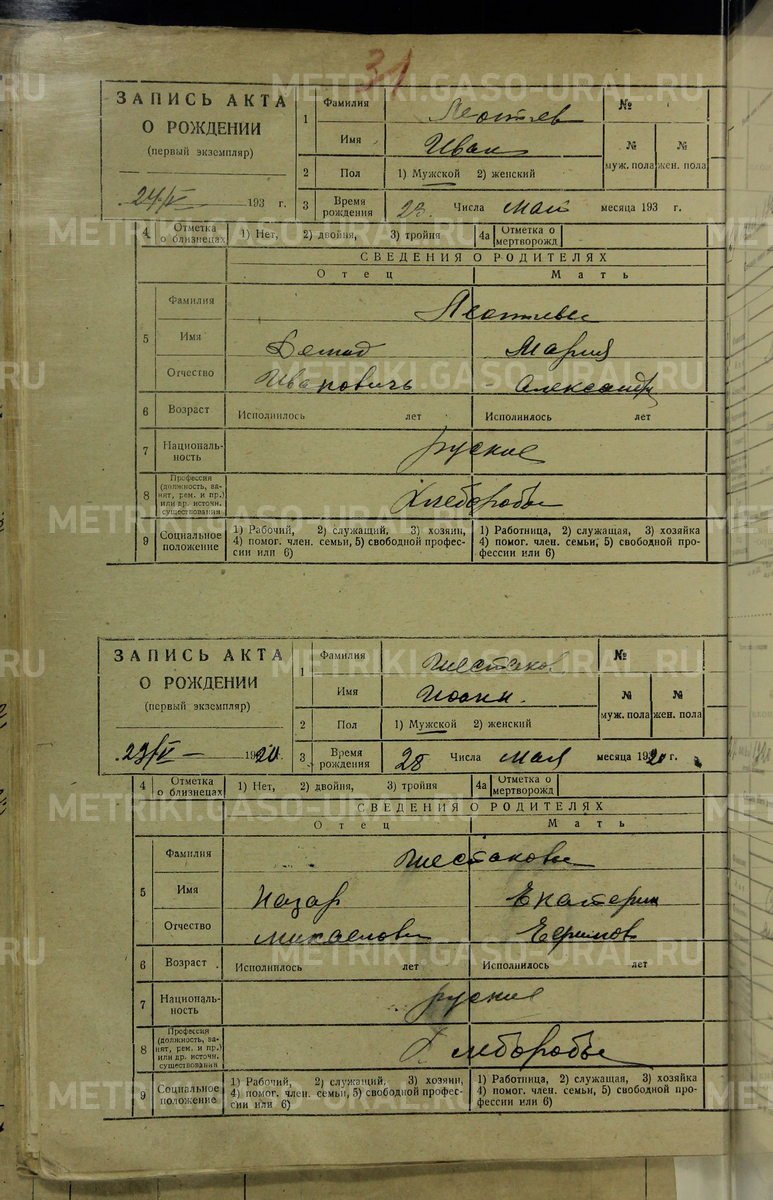 31
ЗАПИСЬ АКТА
О РОЖДЕНИИ
(первый экземпляр)
24/V 193 г.
1 Фамилия Леонтьев №
Имя Иван
№ муж. пола № жен. пола
2 Пол 1) Мужской 2) женский
3 Время рождения 23 Числа Май месяца 193 г.
4 Отметка о близнецах 1) Нет, 2) двойня, 3) тройня 4а Отметка о мертворожд
СВЕДЕНИЯ О РОДИТЕЛЯХ
Отец Мать
5 Фамилия
Имя Мария
Отчество Ивановичь Александр
6 Возраст Исполнилось лет Исполнилось лет
7 Национальность руские
8 Профессия (должность, занят, рем. и пр.) или др. источн. существования Хлеборобы
9 Социальное положение 1) Рабочий, 2) служащий, 3) хозяин, 4) помог. член. семьи, 5) свободной профессии или 6) 1) Работница, 2) служащая, 3) хозяйка 4) помог. член. семьи, 5) свободной профессии или 6)
ЗАПИСЬ АКТА
О РОЖДЕНИИ
(первый экземпляр)
1920
1 Фамилия Шестаков №
Имя Иоанн.
№ муж. пола № жен. пола
2 Пол 1) Мужской 2) женский
3 Время рождения 28 Числа Мая месяца 1920 г.
4 Отметка о близнецах 1) Нет, 2) двойня, 3) тройня 4а Отметка о мертворожд
СВЕДЕНИЯ О РОДИТЕЛЯХ
Отец Мать
5 Фамилия Шестаковы
Имя Назар Екатерин
Отчество Михаелови Ефимов
6 Возраст Исполнилось лет Исполнилось лет
7 Национальность руские
8 Профессия (должность, занят, рем. и пр.) или др. источн. существования Хлеборобы
9 Социальное положение 1) Рабочий, 2) служащий, 3) хозяин, 4) помог. член. семьи, 5) свободной профессии или 6) 1) Работница, 2) служащая, 3) хозяйка 4) помог. член. семьи, 5) свободной профессии или 6)
METRIKI.GASO-URAL.RU